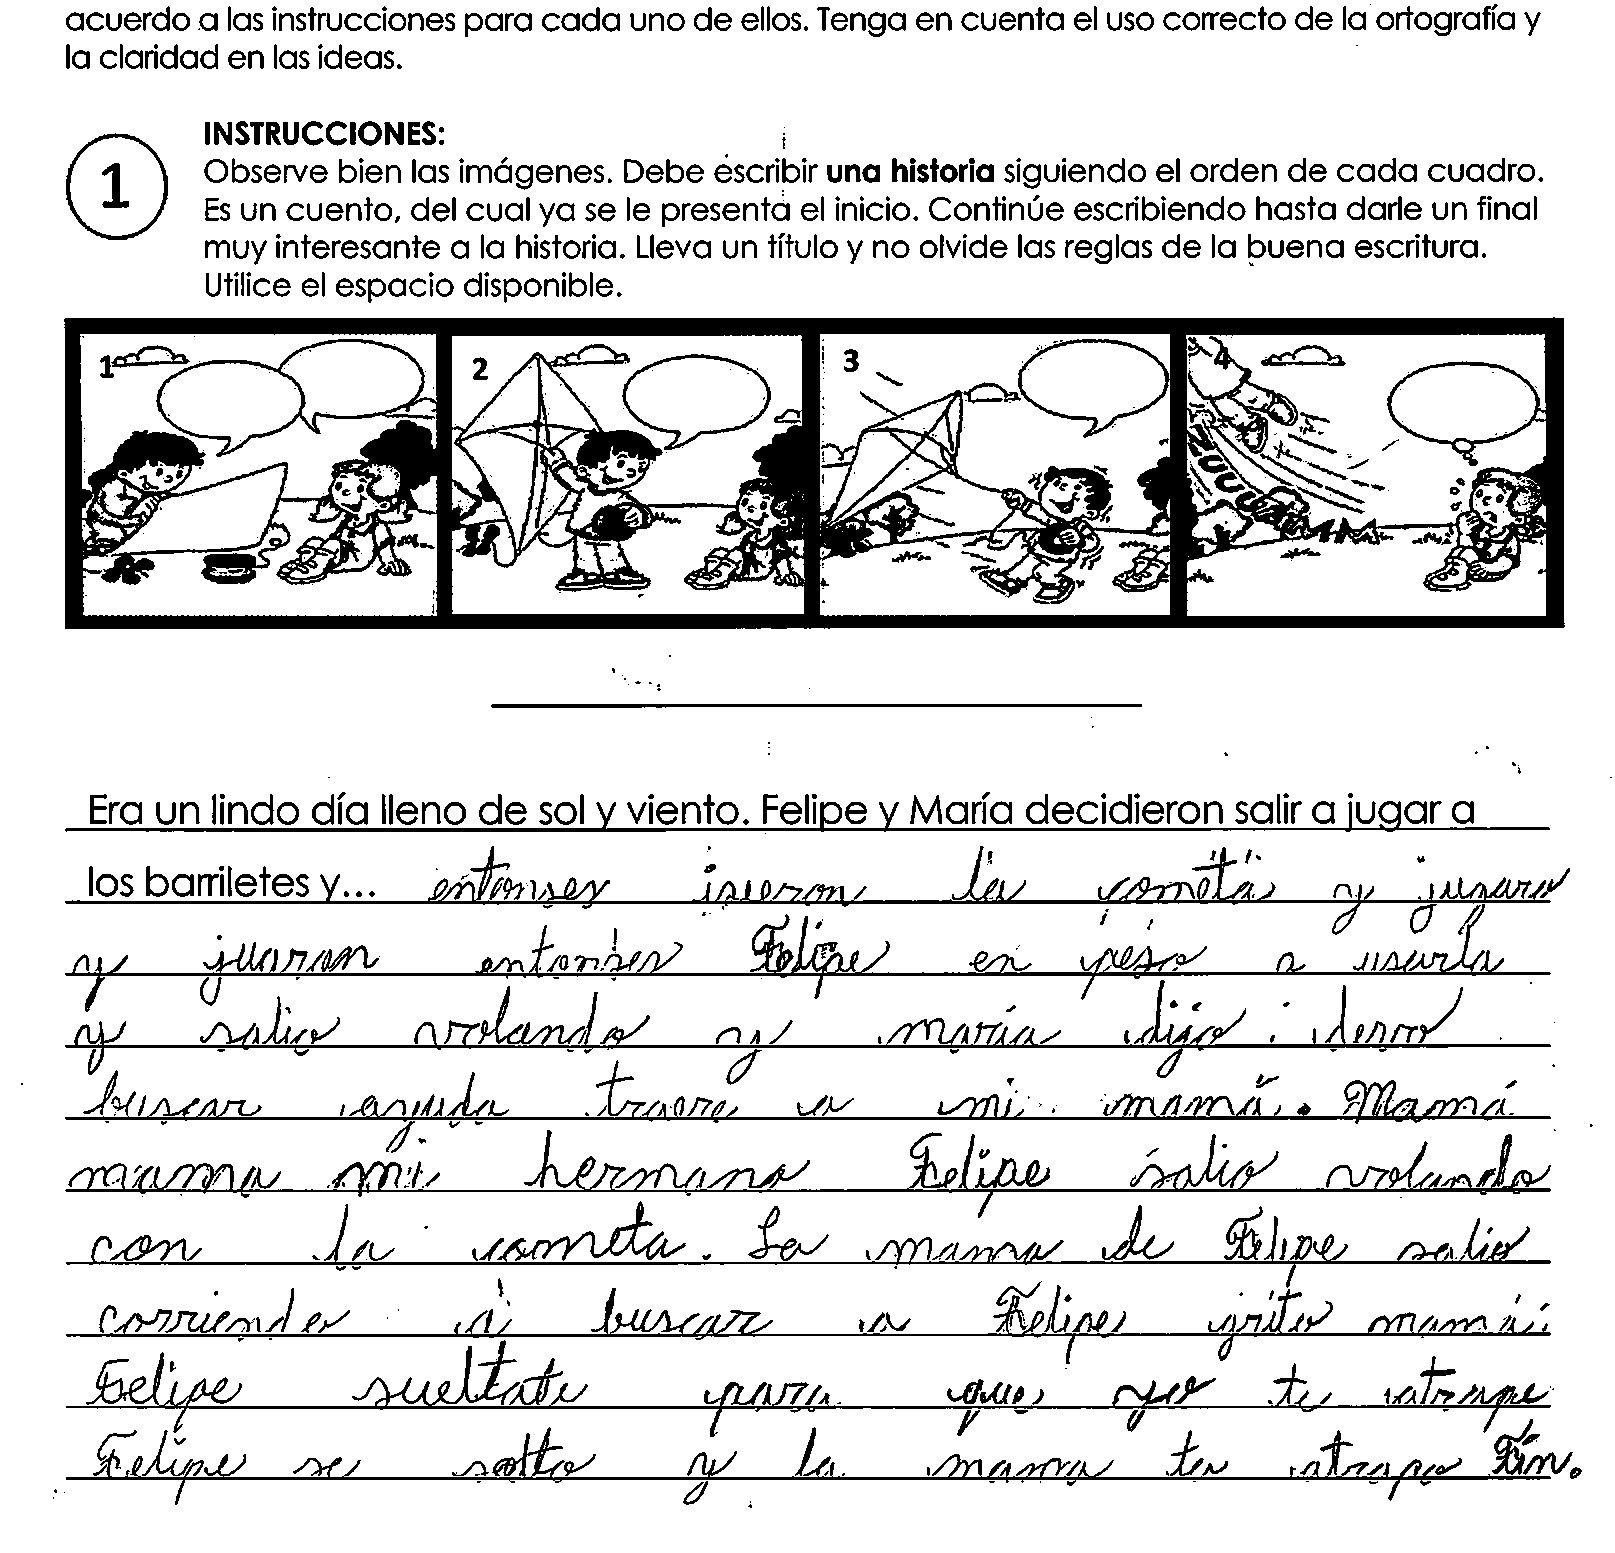 acuerdo a las instrucciones para cada uno de ellos. Tenga en cuenta el uso correcto de la ortografía y
la claridad en las ideas.
1
INSTRUCCIONES:
Observe bien las imágenes. Debe escribir una historia siguiendo el orden de cada cuadro.
Es un cuento, del cual ya se le presenta el inicio. Continúe escribiendo hasta darle un final
muy interesante a la historia. Lleva un título y no olvide las reglas de la buena escritura.
Utilice el espacio disponible.
1 2 3 4
ZUUUUMMM
Era un lindo día lleno de sol y viento. Felipe y María decidieron salir a jugar a
los barriletes y... entonses isieron la cometa y
y juaron entonses Felipe en peso a usarla
y salio volando y maría dijo:
buscar ayuda a mi mamá. Mamá
mama mi hermano Felipe salio volando
con la cometa. La mama de Felipe salio
corriendo a buscar a Felipe grito mamá:
Felipe sueltate para que yo te atrape
Felipe se solto y la mama lo atrapo Fin.